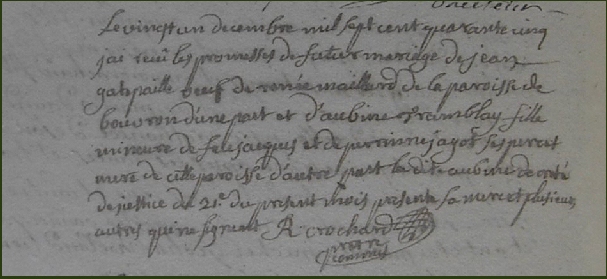 Le vingt un decembre mil sept cent quarante cinq
jai recü les promesses de futur mariage de jean
gatepaille veuf de renée maillard de la paroisse de
bouvron d'une part et d'aubine tramblay fille
mineure de feu jacques et de perrinne jagot ses pere et
mere de cette paroisse d'autre part la dite aubine decreté
de justice du 21e. du present mois presente sa mere et plusieurs
autres qui ne signent R crochard